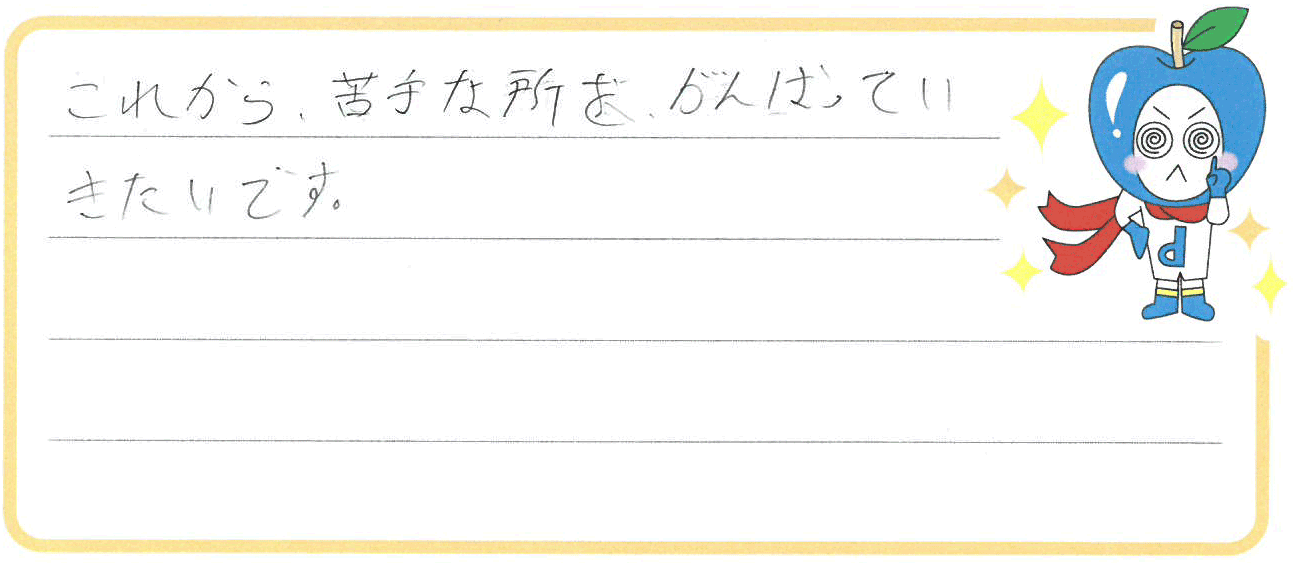 これから、苦手な所を、がんばってい
きたいです。